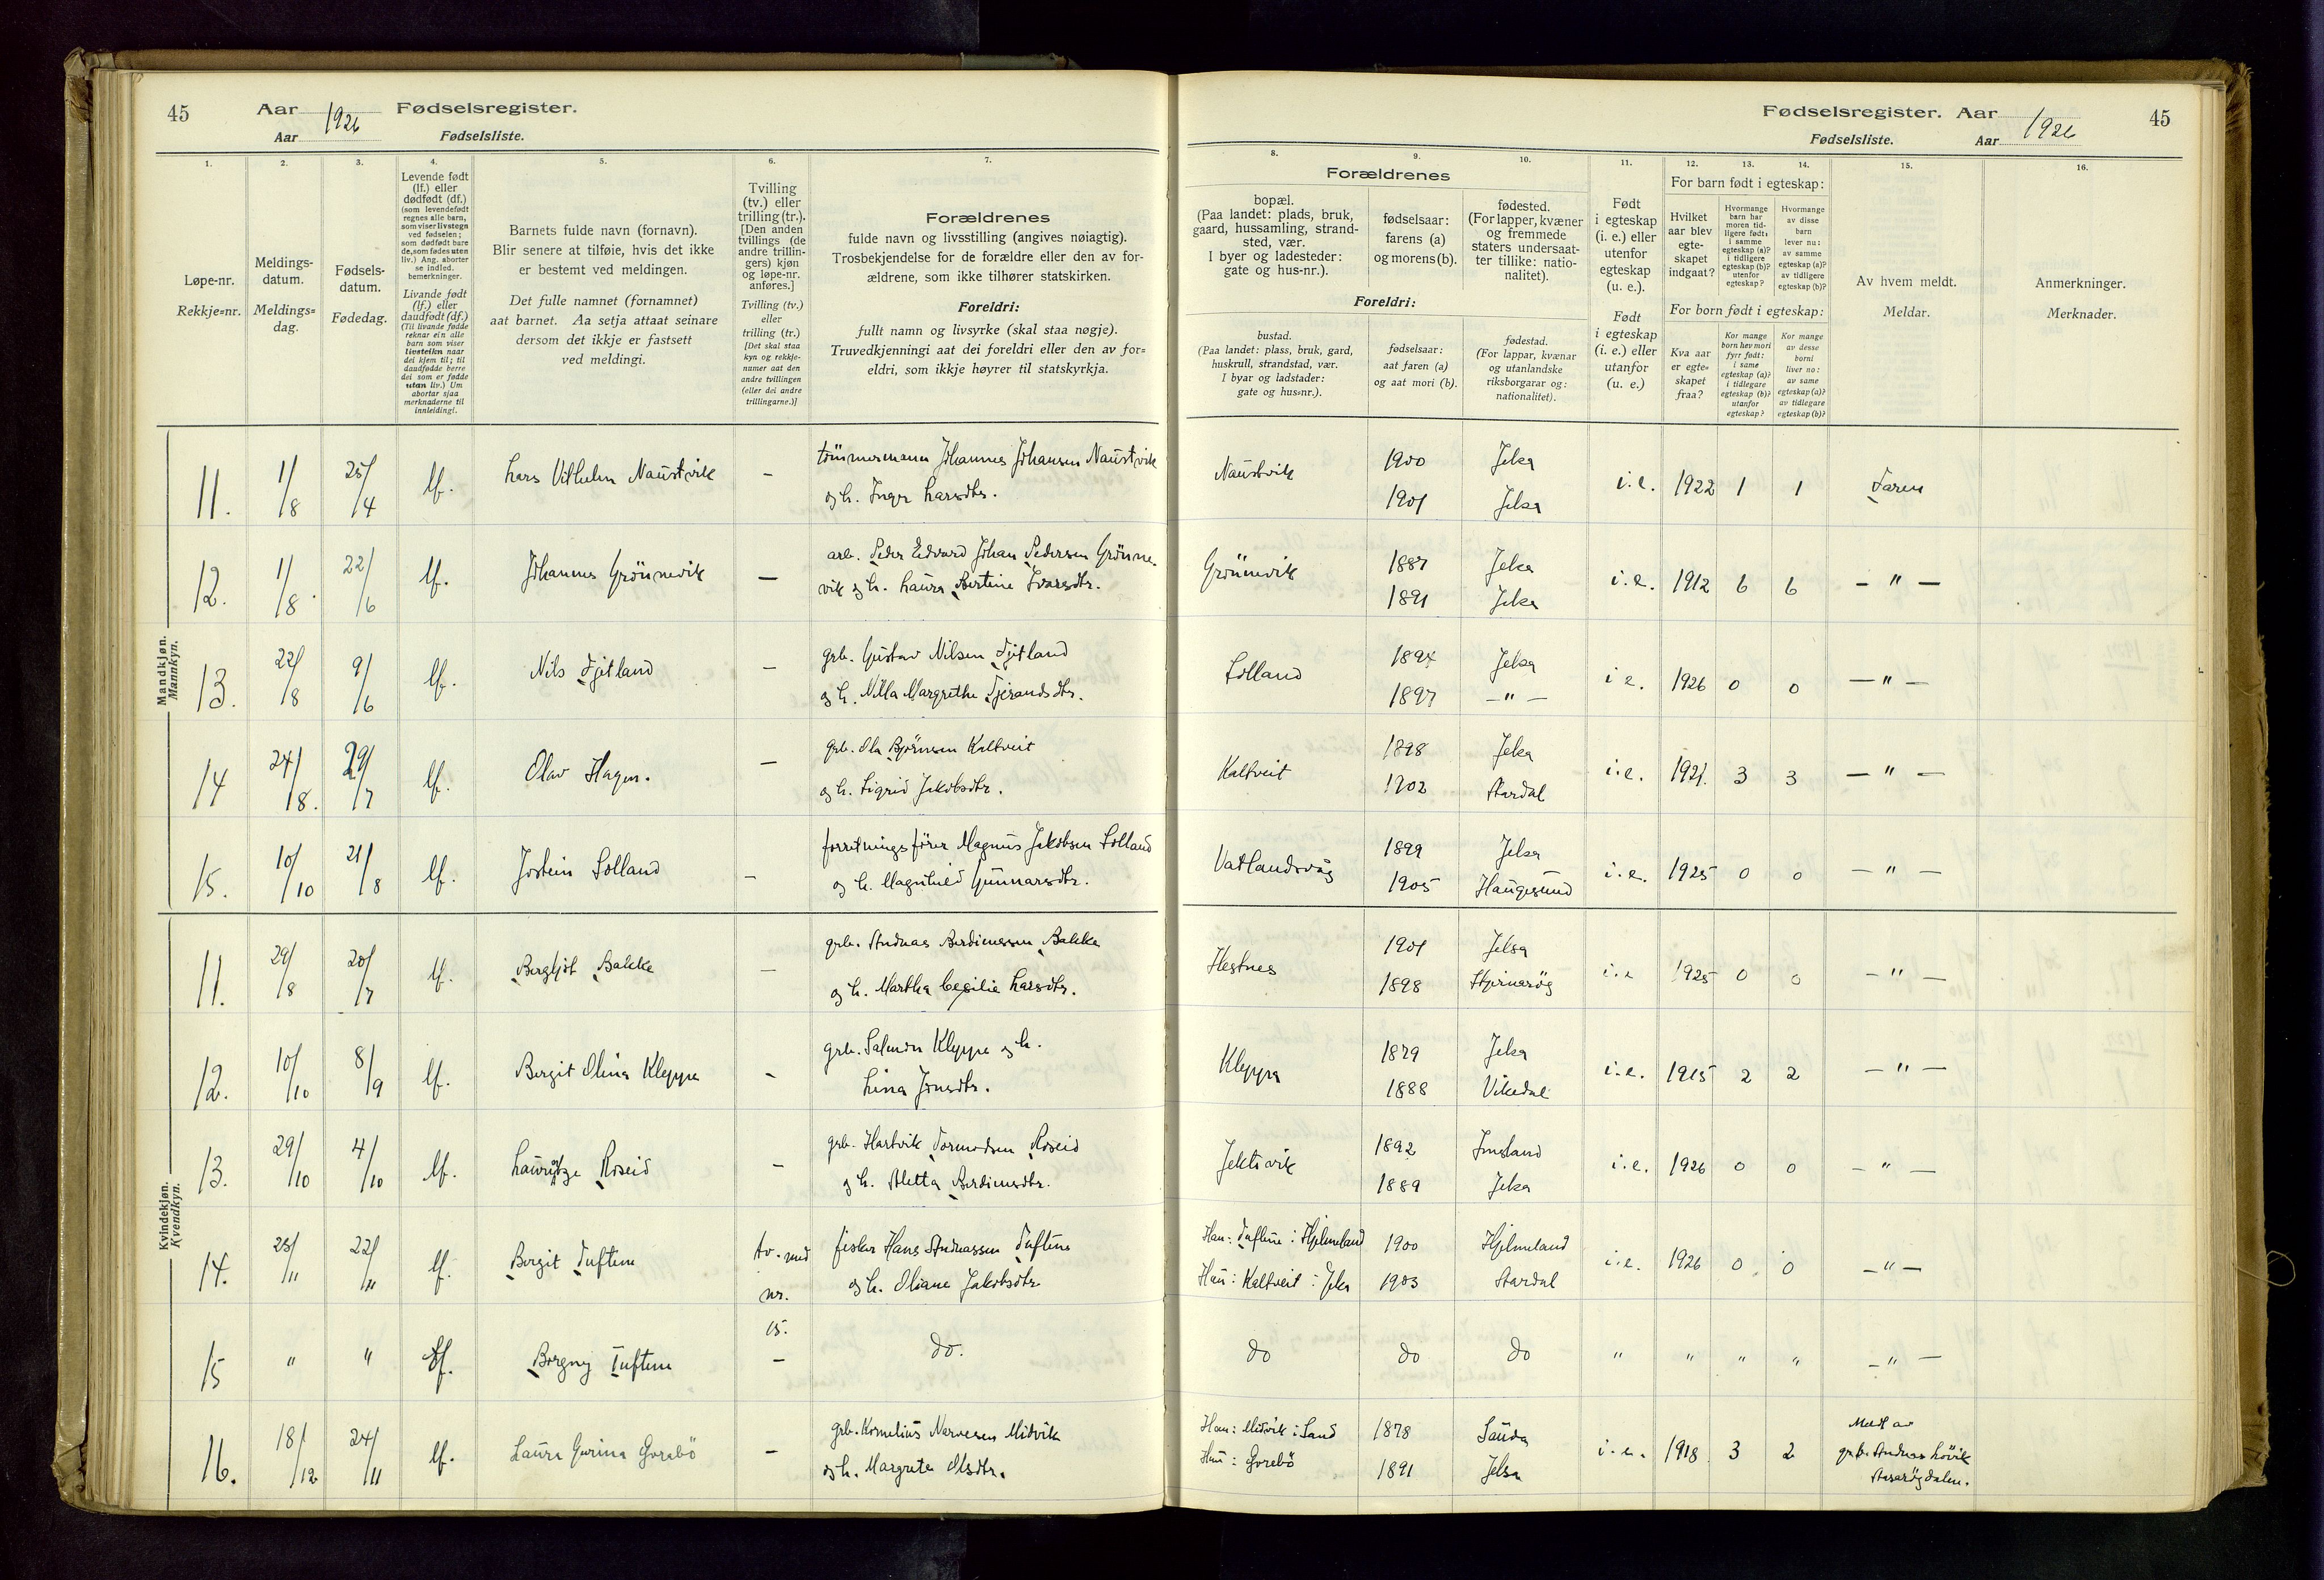 45 Aar 1926 Fødselsregister.
Aar Fødselsliste.
Fødselsregister. Aar 1926 45
Fødselsliste. Aar
1. 2. 3. 4. 5. 6. 7.
Løpe-nr.
Rekkje=nr.
Meldings-
datum.
Meldings=
dag.
Fødsels-
datum.
Fødedag.
Levende født
(lf.) eller
dødfødt (df.)
(som levendefødt
regnes alle barn,
som viser livstegn
ved fødselen;
som dødfødt bare
de, som fødes uten
liv.) Ang. aborter
se indled.
bemerkninger.
Livande født
(lf.) eller
daudfødt (df.)
(Til livande fødde
reknar ein alle
barn som viser
livsteikn naar
dei kjem til; til
daudfødde berre
dei som er fødde
utan liv.) Um
abortar sjaa
merknaderne til
innleidingi.
Barnets fulde navn (fornavn).
Blir senere at tilføie, hvis det ikke
er bestemt ved meldingen.
Det fulle namnet (fornamnet)
aat barnet. Aa setja attaat seinare
dersom det ikkje er fastsett
ved meldingi.
Tvilling
(tv.) eller
trilling (tr.).
[Den anden
tvillings (de
andre trillin-
gers) kjøn
og løpe-nr.
anføres.]
Tvilling (tv.)
eller
trilling (tr.)
[Det skal staa
kyn og rekkje-
numer aat den
andre tvillingen
(eller dei andre
trillingarne.)]
Forældrenes
fulde navn og livsstilling (angives nøiagtig).
Trosbekjendelse for de forældre eller den av for-
ældrene, som ikke tilhører statskirken.
Foreldri:
fullt namn og livsyrke (skal staa nøgje).
Truvedkjenningi aat dei foreldri eller den av for=
eldri, som ikkje høyrer til statskyrkja.
8. 9. 10. 11. 12. 13. 14. 15. 16.
Forældrenes
bopæl.
(Paa landet: plads, bruk,
gaard, hussamling, strand-
sted, vær.
I byer og ladesteder:
gate og hus-nr.).
fødselsaar:
farens (a)
og morens (b).
fødested.
(For lapper, kvæner
og fremmede
staters undersaat-
ter tillike: natio-
nalitet).
Foreldri:
bustad.
(Paa landet: plass, bruk, gard,
huskrull, strandstad, vær.
I byar og ladstader:
gate og hus=nr.).
fødselsaar:
aat faren (a)
og aat mori (b).
fødestad.
(For lappar, kvænar
og utanlandske
riksborgarar og:
nationalitet).
Født
i egteskap
(i. e.) eller
utenfor
egteskap
(u. e.).
Født
i egteskap
(i. e.) eller
utanfor
(u. e.)
For barn født i egteskap:
Hvilket
aar blev
egte-
skapet
indgaat?
Hvormange
barn har
moren tid-
ligere født:
i samme
egteskap (a)?
i tidligere
egteskap (b)?
utenfor
egteskap?
Hvormange
av disse
barn
lever nu:
av samme
egteskap (a)?
av tidligere
egteskap (b)?
For born født i egteskap:
Kva aar
er egte=
skapet
fraa?
Kor mange
born hev mori
fyrr født:
i same
egteskap (a)?
i tidlegare
egteskap (b)?
utanfor
egteskap?
Kor mange
av desse
borni
liver no:
av same
egteskap (a)?
av tidlegare
egteskap (b)?
Av hvem meldt.
Meldar.
Anmerkninger.
Merknader.
Mandkjøn.
Mannkyn.
11. 1/8 25/4 lf. Lars Vilhelm Naustvik – tömmermann Johannes Johansen Naustvik
og h. Inger Larsdtr.
Naustvik 1900 Jelsa i.e. 1922 1 1 Faren
1901 Jelsa
12. 1/8 22/6 lf. Johannes Grönnevik – arb. Peder Edvard Johan Pedersen Grönne-
vik og h. Laura Bertine Ivarsdtr.
Grönnevik 1887 Jelsa i.e. 1912 6 6 – " –
1891 Jelsa
13. 22/8 9/6 lf. Nils Fjetland – grb. Gustav Nilsen Fjetland
og h. Nilla Margrethe Tjerandsdtr.
Lolland 1894 Jelsa i e. 1926 0 0 – " –
1897 – " –
14 24/8. 29/7 lf. Olav Hagen. – grb. Ola Bjørnsen Kaltveit
og h. Sigrid Jakobsdtr.
Kaltveit 1898 Jelsa i.e. 1921. 3 3 – " –
1902 Aardal
15. 10/10 21/8 lf. Jostein Lolland – forretningsfører Magnus Jakobsen Lolland
og h. Magnhild Gunnarsdtr.
Vatlandsvåg 1899 Jelsa i.e. 1925 0 0 – " –
1905 Haugesund
Kvindekjøn.
Kvendkyn.
11. 29/8 20/7 lf. Bergljot Bakke – grb. Andreas Berdinessen Bakke
og h. Martha Cecilie Larsdtr.
Hestnes 1901 Jelsa i.e 1925 0 0 – " –
1898 Hjernarøy
12. 10/10 8/9 lf. Bergit Olina Kleppe – grb. Salmon Kleppe og h.
Lina Jonsdtr.
Kleppa 1879 Jelsa i.e. 1915 2 2 – " –
1888 Vikedal
13. 29/10 4/10 lf. Lauritze Roseid – grb. Hartvik Tormodsen Roseid
og h. Aletta Berdinesdtr.
Jektevik 1892 Imsland i.e. 1926 0 0 – " –
1889 Jelsa
14. 25/11 22/11 lf. Bergit Tuftene tv. med
nr.
15. fisker Hans Andreassen Tuftene
og h. Oliane Jakobsdtr
Han: Tuftene i Hjelmeland 1900 Hjelmeland i.e. 1926 0 0 – " –
Hun: Kaltveit i Jelsa 1903 Aardal
15 " " lf. Borgny Tuftene – do.
do do do " " " " – " –
16. 18/12 24/11 lf. Laura Gurina Gorebö – grb. Kornelius Narvesen Midvik
og h. Margreta Olsdtr.
Han: Midvik i Sand 1878 Sauda i.e. 1918 3 2 Meldt av
Hun: Gorebö 1891 Jelsa grb. Andreas Lövik